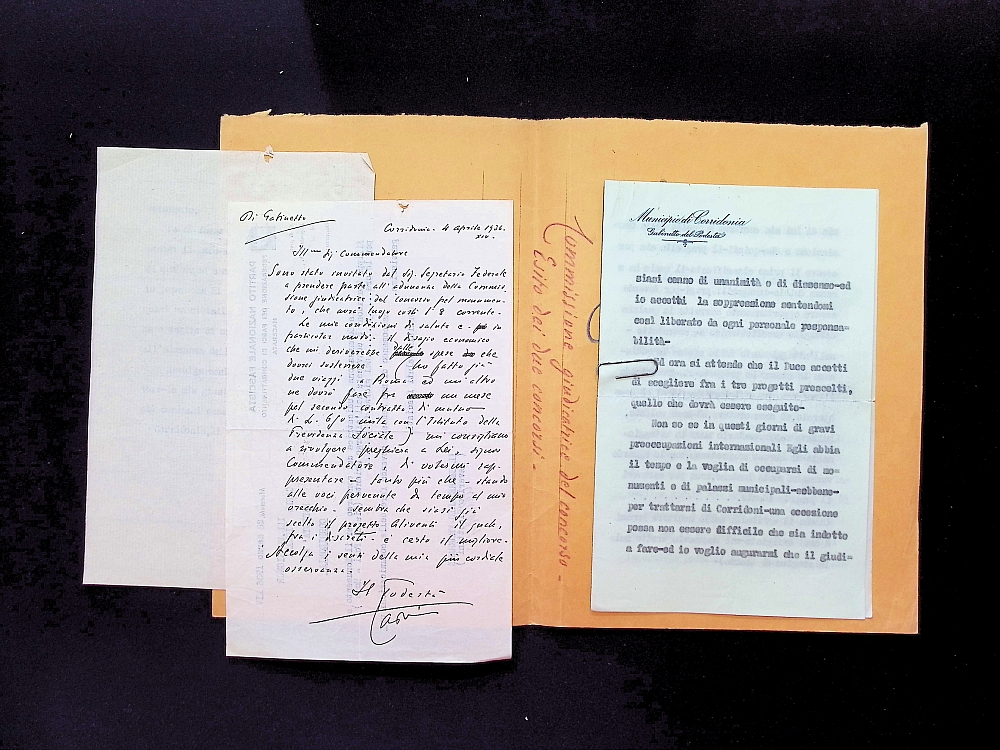 Di Gabinetto
Corridonia - 4 aprile 1936.
XIV.
Ill.mo Sig. Commendatore
Sono stato invitato dal Sig. Segretario Federale
a prendere parte all'adunanza della Commis-
sione giudicatrice del concorso pel monumen-
to, che avrà luogo costì l'8 corrente.
Le mie condizioni di salute e - in
particolar modo - il disagio economico
che mi deriverebbe dalle spese che
dovrei sostenere - (ho fatto già
due viaggi a Roma ed un altro
ne dovrò fare fra un mese
pel secondo contratto di mutuo
di L. 650 mila con l'Istituto della
Previdenza Sociale) mi consigliano
a rivolgere preghiera a Lei, signor
Commendatore, di volermi rap-
presentare - tanto più che - stando
alle voci pervenute da tempo al mio
orecchio - sembra che siasi già
scelto il progetto Oliventi il quale,
fra i discreti - è certo il migliore.
Accolga i sensi della mia più cordiale
osservanza.
Il Podestà
Commissione giudicatrice del concorso -
Esito dei due concorsi -
Municipio di Corridonia
Gabinetto del Podestà
siasi censo di unanimità o di dissenso-ed
io accetti la soppressione sentendomi
così liberato da ogni personale responsa-
bilità-
Ed ora si attende che il Duce accetti
di scegliere fra i tre progetti prescelti,
quello che dovrà essere eseguito-
Non so se in questi giorni di gravi
preoccupazioni internazionali Egli abbia
il tempo e la voglia di occuparsi di mo-
numenti e di palazzi municipali-sebbene-
per trattarsi di Corridoni-una eccezione
possa non essere difficile che sia indotto
a fare-ed io voglio augurarmi che il giudi-
PARTITO NAZIONALE FASCISTA